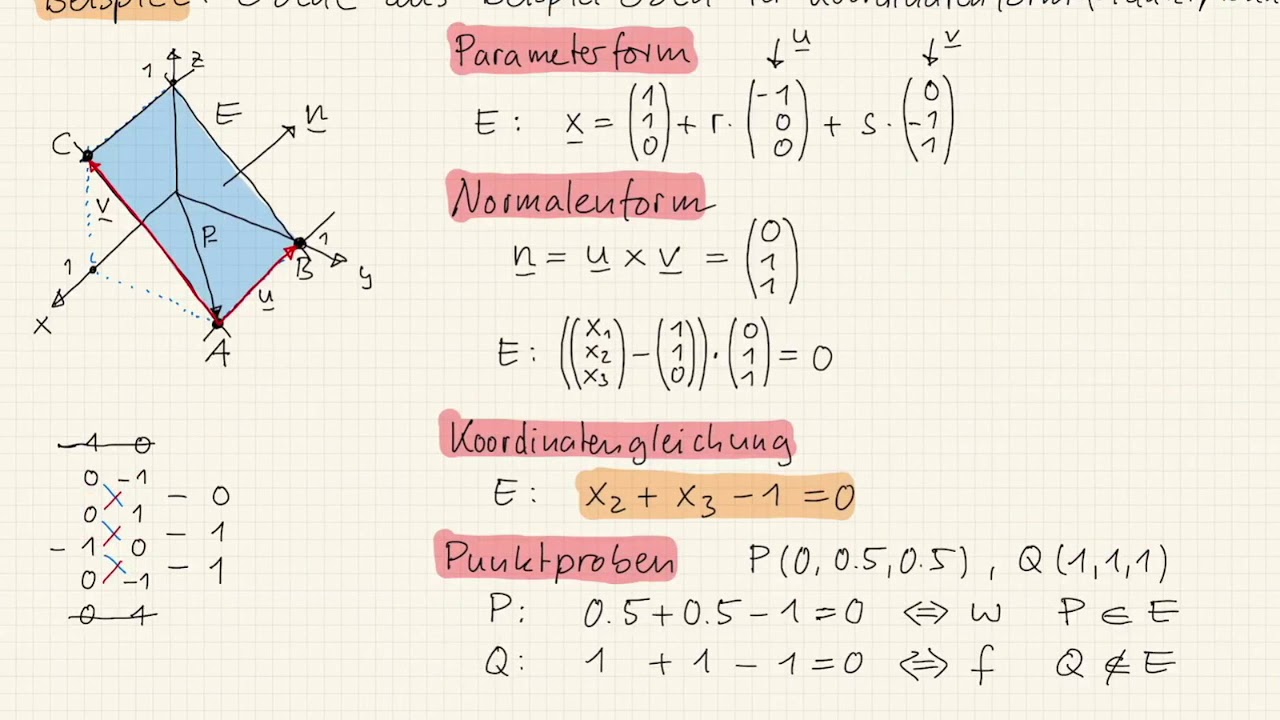 Beispiel:
Parameterform
u v
E: x = (1 1 0) + r · (-1 0 0) + s · (0 -1 1)
Normalenform
n = u × v = (0 1 1)
E: ((x₁ x₂ x₃) - (1 1 0)) · (0 1 1) = 0
Koordinatengleichung
E: x₂ + x₃ - 1 = 0
Punktproben P(0, 0.5, 0.5), Q(1,1,1)
P: 0.5 + 0.5 - 1 = 0 ⇔ w P ∈ E
Q: 1 + 1 - 1 = 0 ⇔ f Q ∉ E
1 z
E
n
C
v
P
1
B
y
1
u
x
A
-1 0
0 -1
- 0
0 1
- 1
-1 0
- 1
0 -1
0 1